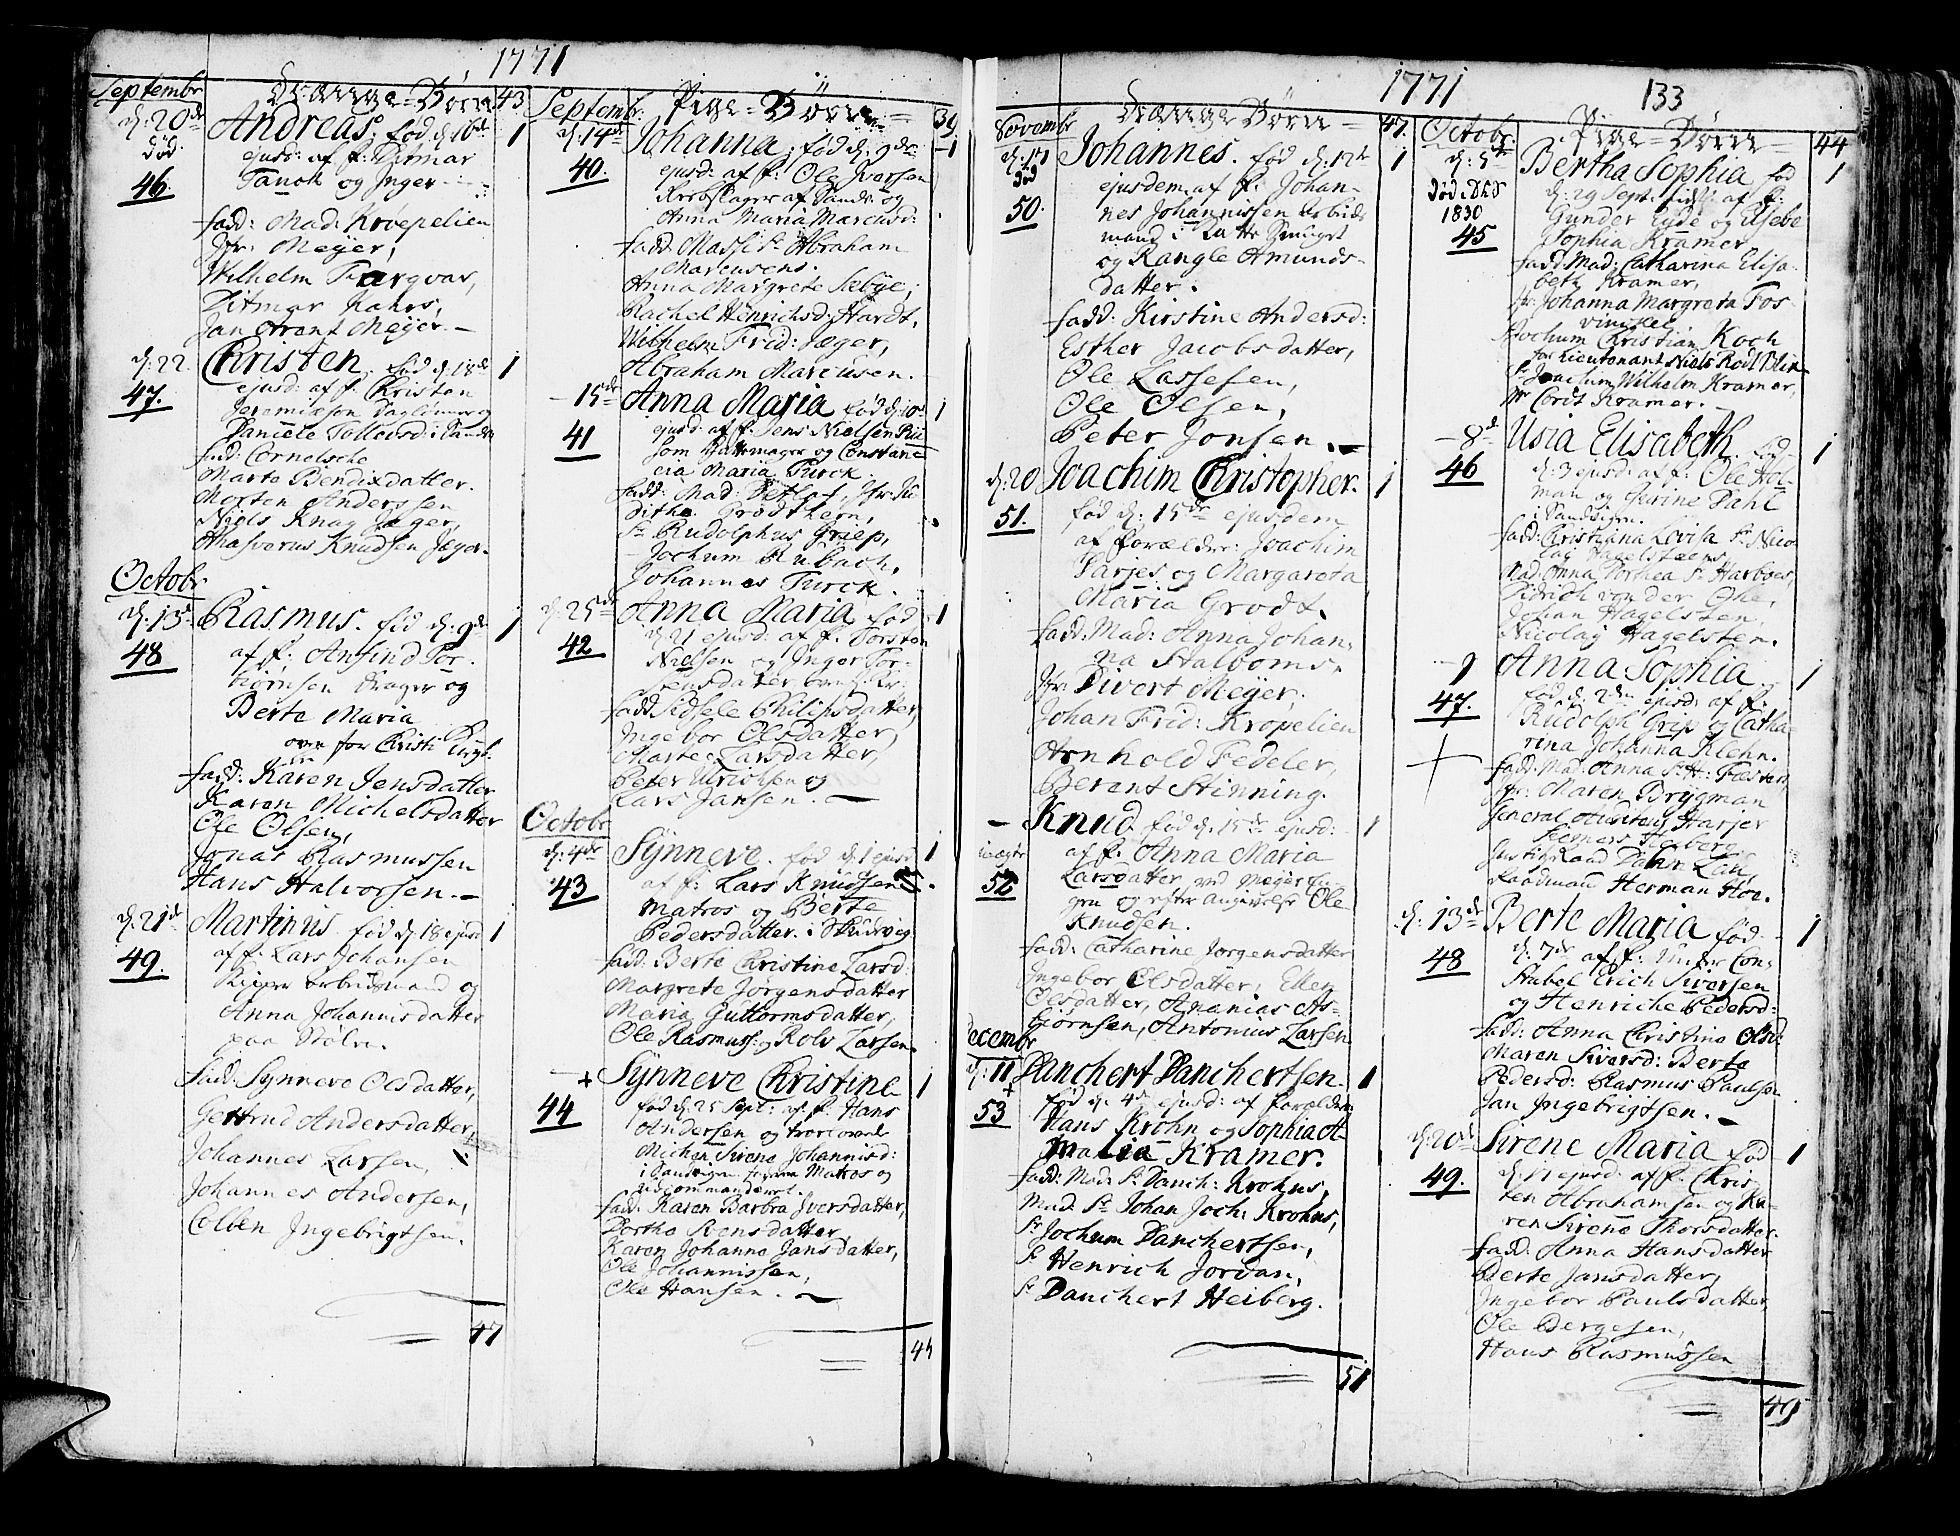 1771
Septembr
Drænge-Börn 43
d: 20de
død
46.
Andreas; fød d: 16de 1
ejusd: af f: Ditmar
Tanck og Inger
fadd: Mad: Kroepelien
Jfr: Meyer,
Wilhelm Farqvar,
Ditmar Nahrs,
Jan Arent Meyer.
d: 22
47.
Christen. fød d: 18de 1
ejusd: af f: Christen
Jeremiæson Dagleiner og
Daniele Tollevsd: i Sandv
fad: Cornelsche
Marte Bendixdatter.
Morten Anderssen
Niels Knag Jæger,
Ahasverus Knudsen Jæger.
Octobr
d: 13de
48
Rasmus. fød d: 9de 1
af f: Ansind Tor-
biørnsen Drager og
Berte Maria
over for Christi Kryb.
fadd: Karen Jensdatter
Karen Michelsdatter
Ole Olsen,
Jonas Rasmussen
Hans Halvorsen.
d: 21de
49.
Martinus fød d: 18 ejusd 1
af f: Lars Johansen
Riiper Arbeidsmand og
Anna Johannisdatter
paa Nölen.
fadd: Synneve Olsdatter,
Gertrud Andersdatter,
Johannes Larsen,
Johannes Andersen,
Colben Ingebrigtsen.
47
Septembr.
Pige-Börn 39
d: 14de
40.
Johanna; fød d: 9de 1
ejusd: af f: Ole Iversen
Rebslager af Sandv: og
Anna Maria Marcusd:
fadd: Massi Sr Abraham
Marcusens.
Anna Margrete Sæbye;
Rachel Henrichsd: Hardt,
Wilhelm Frid: Jæger,
Abraham Marcusen.
15de
41
Anna Maria fød d: 10de 1
ejusd: af f: Jens Nielsen Rii
som Hattemager og Constanc
cia Maria Turck.
fadd: Mad: Detlof, Jfr: Ju
ditha Trodthern,
Sr Rudolphus Griep,
Jochum Rubach,
Johannes Turck.
d: 25de
42
Anna Maria fød 1
d: 21 ejusd: af f: Torsten
Nielsen og Inger Tor-
stensdatter
fadd Sidsele Philipsdatter,
Ingebor Olsdatter,
Marte Larsdatter,
Peter Ulrichsen og
Lars Jansen.
Octobr
d: 4de
43
Synneve. fød d: 1 ejusd 1
af f: Lars Knudsen
Matros og Berte
Pedersdatter. i Skudevig
fadd: Berte Christine Larsd:
Margrete Jörgensdatter
Maria Guttormsdatter,
Ole Rasmuss: og Rolv Larsen.
+
44
Synneve Christine 1
fød d: 25 Sept: af f: Hans
Andersen og
Michen Sirene Johannisd:
i Sandvigen Matros og
fadd: Karen Barbra Iversdatter,
Dorthe Rensdatter
Karen Johanna Jansdatter,
Ole Johannissen,
Ole Hansen.
1771
Novembr
Drænge Börn 47.
d: 17
død
50.
Johannes. fød d: 12te 1
ejusdem af f: Johan-
nes Johannissen Arbeids
mand i Latte Smuget
og Rangle Amunds-
datter.
fadd: Kirstine Andersd:
Esther Jacobsdatter,
Ole Lassesen,
Ole Olsen,
Peter Jonsen.
d: 20
51.
Joachim Christopher. 1
fød d: 15de ejusdem
af forældre: Joachim
Sarjes og Margareta
Maria Grodt.
fadd: Mad: Anna Johan-
na Stalboms,
Jfr: Divert Meyer,
Johan Frid: Kröpelien
Arnhold Fedeler,
Berent Stinning.
uægte
52
Knud fød d: 15de ejusd: 1
af f: Anna Maria
Larsdatter ved
gen og efter Angivelse Ole
Knudsen.
fadd: Catharine Jorgensdatter
Ingebor Olsdatter, Ellen
Olsdatter, Ananias As-
biörnsen, Antonius Larsen
Decembr
d: 11
+
53
Danchert Danchertsen. 1
fød d: 4de ejusd: af forældre
Hans Krohn og Sophia A-
malia Kramer.
fadd: Mad: Sr Danch: Krohns,
Mad: Sr Johan Joch: Krohns,
Sr Jochum Danchertsen,
Sr Henrich Jordan,
Sr Danchert Heiberg.
51
133
Octobr:
Pige-Börn 44
d: 5te
død
1830
45
Bertha Sophia fød 1
d: 29 Sept. af f:
Gunder Eyde og Elsebe
Sophia Kramer
fadd Mad: Catharina Elisa-
beth Kramer,
Jfr Johanna Margreta Fos-
vinckel
Jochum Christian Koch
for Lieutenant Niels Rod Blix
Sr Joachum Wilhelm Kramer,
Mr Cordt Kramer.
8de
46
Usia Elisabeth. fød 1
d: 3 ejusd: af f: Ole Hol-
man og Gurine Dahl
i Sandvigen.
fadd: Christiana Lovisa Sr Nico-
lay Hagelsteens,
Mad: Anna Dorthea Sr Harboes,
Didrich von der Ohe,
Johan Hagelsten,
Nicolay Hagelsten.
9
47.
+
Anna Sophia 1
fød d: 2den ejusd: af f:
Rudolph Grip og Catha-
rina Johanna Klehn.
fadd: Mad: Anna Sr H: Fæsters
Jfr: Maren Brygman
General Auditeur Harser
Justitz Raad
Raadmand Herman Hoe.
d: 13de
48
Berte Maria fød 1
d: 7de af f: Under Con-
stabel Erich Siversen
og Henriche Pedersd:
fadd: Anna Christine Olsd:
Maren Siversd: Berte
Pedersd: Rasmus Paulsen
Jan Ingebrigtsen.
d: 20de
49.
Sirene Maria fød 1
d: 17 ejusd: af f: Chris-
ten Abrahamsen og Ka-
ren Sirene Thorsdatter.
fadd: Anna Hansdatter
Berte Jansdatter,
Ingebor Paulsdatter,
Ole Bergesen,
Hans Rasmussen
49